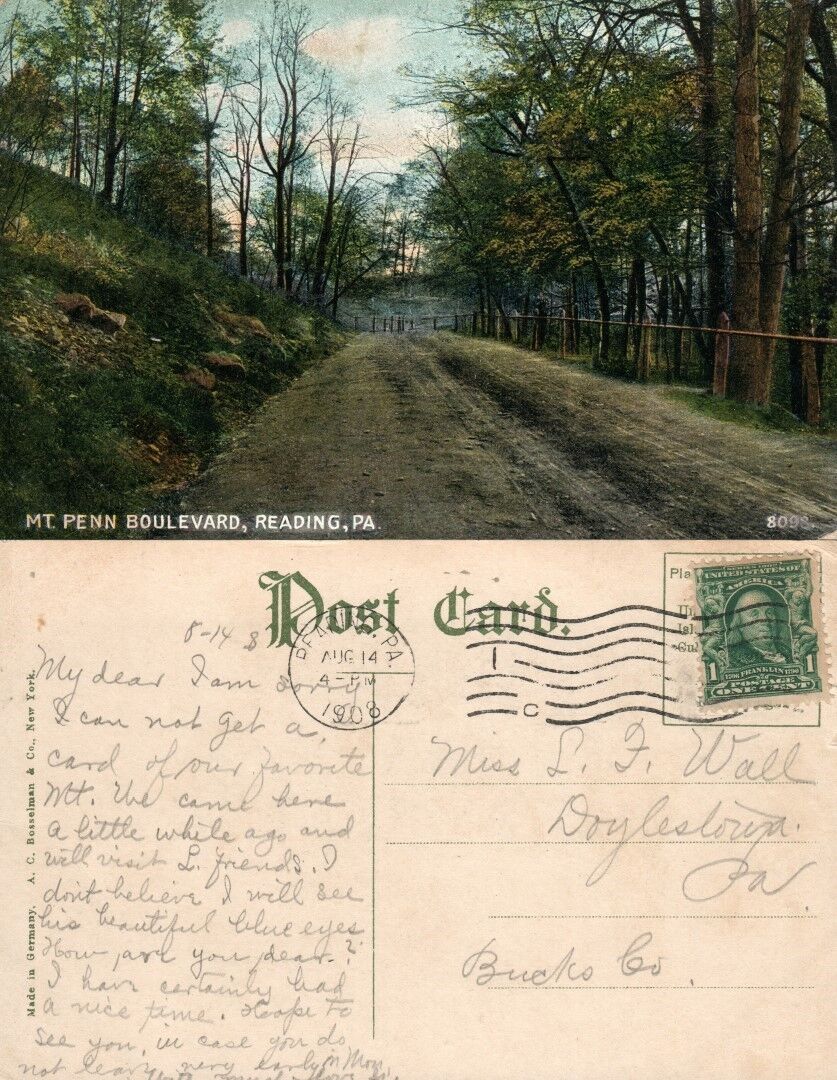 MT. PENN BOULEVARD, READING, PA.
8098.
Post Card.
Made in Germany. A. C. Bosselman & Co., New York.
READING, PA.
AUG 14
4-PM
1908
1
C
Pla
Isl
SERIES 1902
UNITED STATES OF
AMERICA
1706 FRANKLIN 1790
1 POSTAGE
ONE CENT
8-14 8
My dear I am sorry
I can not get a
card of our favorite
Mt. We came here
a little while ago and
will visit L. friends. I
dont believe I will see
his beautiful blue eyes
How are you dear?
I have certainly had
a nice time. Hoope to
see you, in case you do
not leave very early on Mon,
With much love
Miss L. F. Wall
Doylestown.
Pa
Bucks Co.